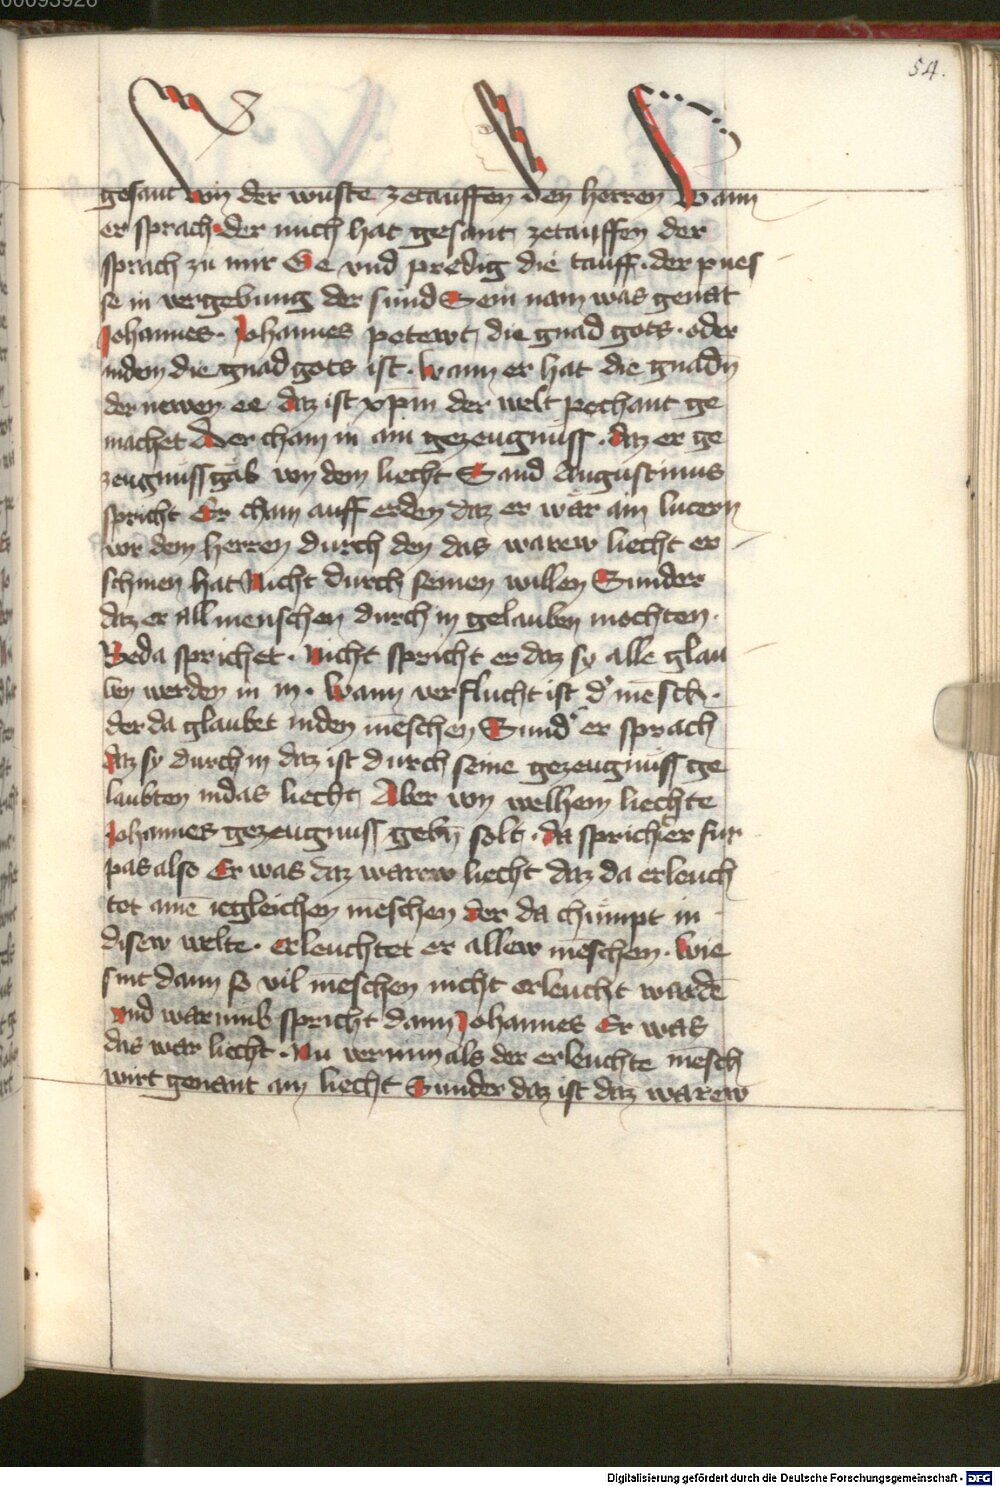 00093926
54.
gesant von der wuste zetauffen den herren Wann
er sprach der mich hat gesant zetauffen der
sprach zu mir Ge vnd predig die tauff · der pues
se in vergebung der sund Sein nam was genat
Johannes · Johannes petewt die gnad gots · oder
indem die gnad gots ist · Wann er hat die gnadn
der newen ee daz ist xpm der welt pechant ge
machet Der cham in ain gezeugnuss · daz er ge
zeugnuss gab von dem liecht Sand Augustinus
spricht Er cham auff erden daz er wär ain lucern
vor dem herren durch den das warew liecht er
schinen hat Nicht durch seinen willen Sunder
daz er all menschen durch in gelauben mochten ·
Beda sprichet · Nicht spricht er daz sy alle glau
ben werden in in · Wann verflucht ist d' mēsch ·
der da glaubet inden mēschen Sund' er sprach
daz sy durch in daz ist durch seine gezeugnuss ge
laubten indas liecht Aber von welhem liechte
Johannes gezeugnuss gebn solt · da spricht er fur
pas also Er was daz warew liecht daz da erleuch
tet ainē iegleichen mēschen der da chümpt in
disew welte · erleuchtet er allew mēschen · Wie
sint dann so vil mēschen nicht erleucht wardē
vnd warumb spricht dann Johannes Er was
das war liecht · Nu vernim als der erleuchte mēsch
wirt genant ain liecht Sunder daz ist daz warew
Digitalisierung gefördert durch die Deutsche Forschungsgemeinschaft - DFG